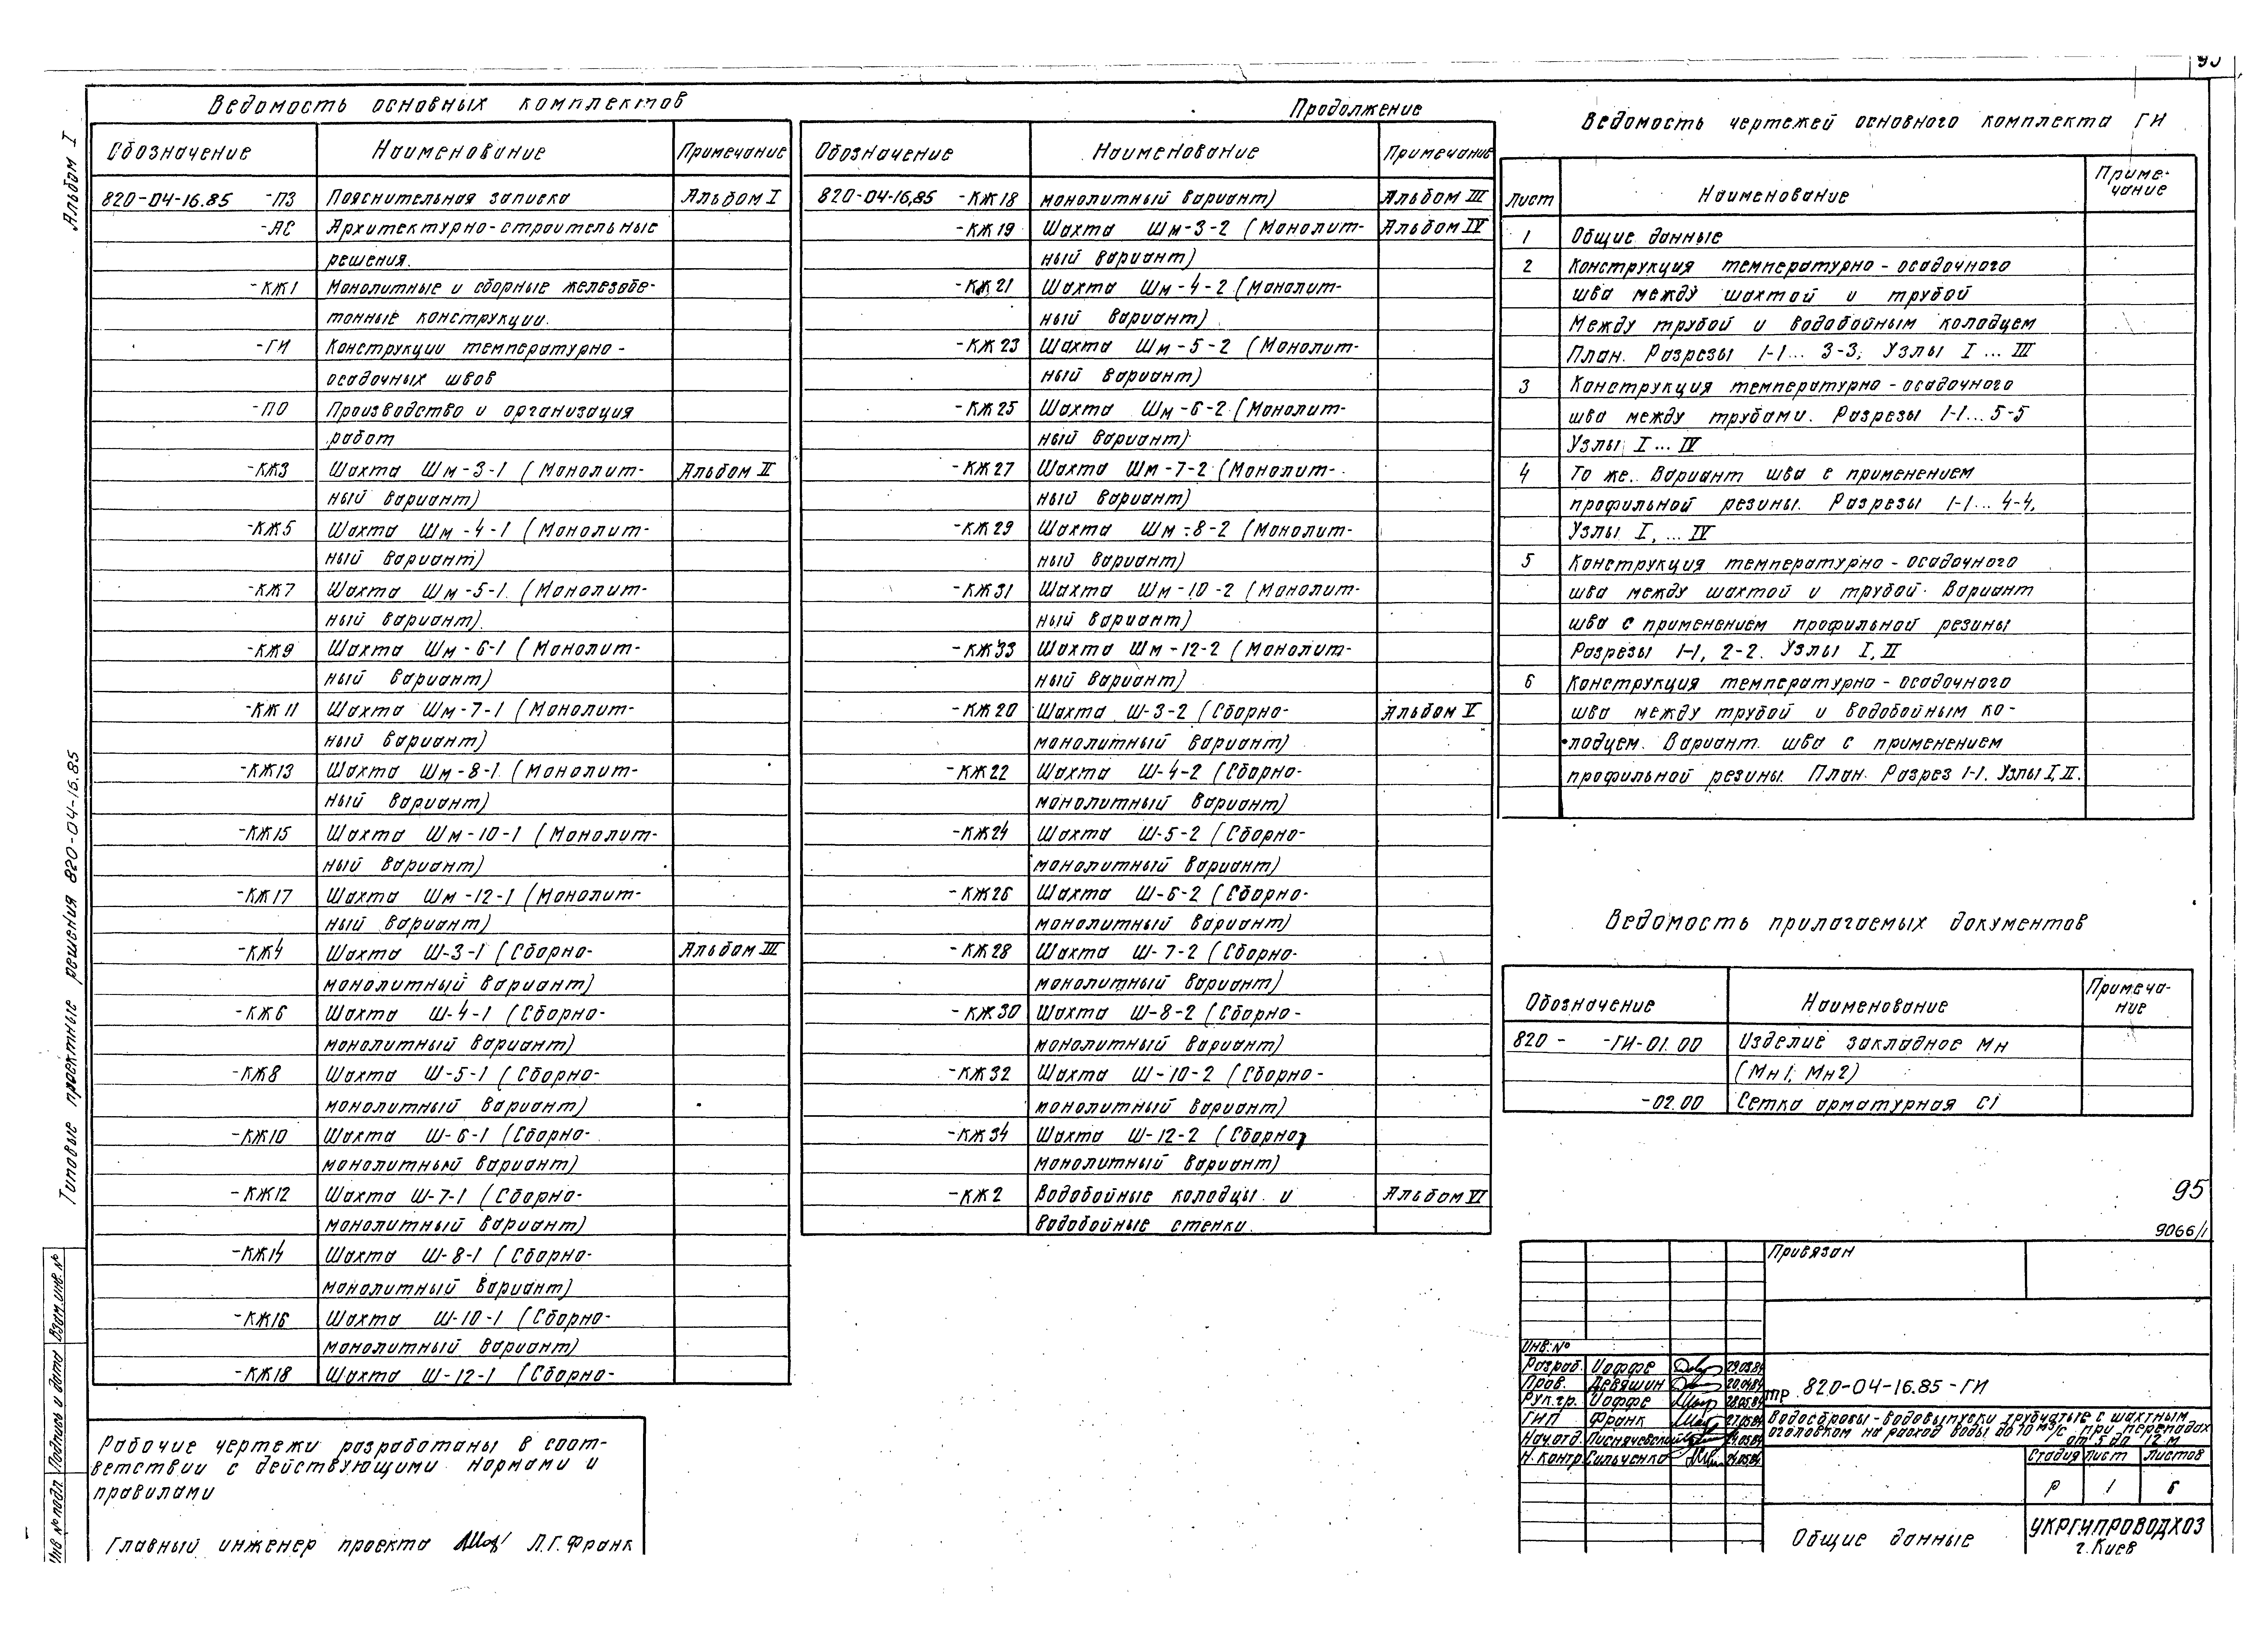 Альбом I
Типовые проектные решения 820-04-16.85
Взам. инв. №
Подпись и дата
Инв № подл
Ведомость основных комплектов
Обозначение Наименование Примечание
820-04-16.85 -ПЗ Пояснительная записка Альбом I
-АС Архитектурно-строительные
решения.
-КЖ1 Монолитные и сборные железобе-
тонные конструкции.
-ГИ Конструкции температурно-
осадочных швов
-ПО Производство и организация
работ
-КЖ3 Шахта Шм-3-1 (Монолит- Альбом II
ный вариант)
-КЖ5 Шахта Шм-4-1 (Монолит-
ный вариант)
-КЖ7 Шахта Шм-5-1. (Монолит-
ный вариант).
-КЖ9 Шахта Шм-6-1 (Монолит-
ный вариант)
-КЖ11 Шахта Шм-7-1 (Монолит-
ный вариант)
-КЖ13 Шахта Шм-8-1. (Монолит-
ный вариант)
-КЖ15 Шахта Шм-10-1 (Монолит-
ный вариант)
-КЖ17 Шахта Шм-12-1 (Монолит-
ный вариант)
-КЖ4 Шахта Ш-3-1 (Сборно- Альбом III
монолитный вариант)
-КЖ6 Шахта Ш-4-1 (Сборно-
монолитный вариант)
-КЖ8 Шахта Ш-5-1 (Сборно-
монолитный вариант)
-КЖ10 Шахта Ш-6-1 (Сборно-
монолитный вариант)
-КЖ12 Шахта Ш-7-1 (Сборно-
монолитный вариант)
-КЖ14 Шахта Ш-8-1 (Сборно-
монолитный вариант)
-КЖ16 Шахта Ш-10-1 (Сборно-
монолитный вариант)
-КЖ18 Шахта Ш-12-1 (Сборно-
Рабочие чертежи разработаны в соот-
ветствии с действующими нормами и
правилами
Главный инженер проекта Л.Г.Франк
Продолжение
Обозначение Наименование Примечание
820-04-16,85 -КЖ18 монолитный вариант) Альбом III
-КЖ19 Шахта Шм-3-2 (Монолит- Альбом IV
ный вариант)
-КЖ21 Шахта Шм-4-2 (Монолит-
ный вариант)
-КЖ23 Шахта Шм-5-2 (Монолит-
ный вариант)
-КЖ25 Шахта Шм-6-2 (Монолит-
ный вариант)
-КЖ27 Шахта Шм-7-2 (Монолит-
ный вариант)
-КЖ29 Шахта Шм-8-2 (Монолит-
ный вариант)
-КЖ31 Шахта Шм-10-2 (Монолит-
ный вариант)
-КЖ33 Шахта Шм-12-2 (Монолит-
ный вариант)
-КЖ20 Шахта Ш-3-2 (Сборно- Альбом V
монолитный вариант)
-КЖ22 Шахта Ш-4-2 (Сборно-
монолитный вариант)
-КЖ24 Шахта Ш-5-2 (Сборно-
монолитный вариант)
-КЖ26 Шахта Ш-6-2 (Сборно-
монолитный вариант)
-КЖ28 Шахта Ш-7-2 (Сборно-
монолитный вариант)
-КЖ30 Шахта Ш-8-2 (Сборно-
монолитный вариант)
-КЖ32 Шахта Ш-10-2 (Сборно-
монолитный вариант)
-КЖ34 Шахта Ш-12-2 (Сборно-
монолитный вариант)
-КЖ2 Водобойные колодцы и Альбом VI
водобойные стенки.
Ведомость чертежей основного комплекта ГИ
Лист Наименование Приме-
чание
1 Общие данные
2 Конструкция температурно-осадочного
шва между шахтой и трубой
Между трубой и водобойным колодцем
План. Разрезы 1-1... 3-3, Узлы I ... III
3 Конструкция температурно-осадочного
шва между трубами. Разрезы 1-1... 5-5
Узлы I ... IV
4 То же. Вариант шва с применением
профильной резины. Разрезы 1-1... 4-4,
Узлы I, ... IV
5 Конструкция температурно-осадочного
шва между шахтой и трубой. Вариант
шва с применением профильной резины
Разрезы 1-1, 2-2. Узлы I, II
6 Конструкция температурно-осадочного
шва между трубой и водобойным ко-
лодцем. Вариант шва с применением
профильной резины. План. Разрез 1-1. Узлы I, II.
Ведомость прилагаемых документов
Обозначение Наименование Примеча-
ние
820- -ГИ-01.00 Изделие закладное Мн
(Мн1, Мн2)
-02.00 Сетка арматурная С1
95
9066/1
Привязан
Инв. №
Разраб. Иоффе 29.03.84
Пров. Девяшин 20.04.84
Рук.гр. Иоффе 28.05.84
ГИП Франк 27.05.84
Нач.отд. 24.05.84
Н. контр. Сильченко 24.05.84
ТР 820-04-16.85-ГИ
Водосбросы-водовыпуски трубчатые с шахтным
оголовком на расход воды до 10 м3/с при перепадах
от 5 до 12 м
Стадия Лист Листов
Р 1 6
Общие данные
УКРГИПРОВОДХОЗ
г. Киев